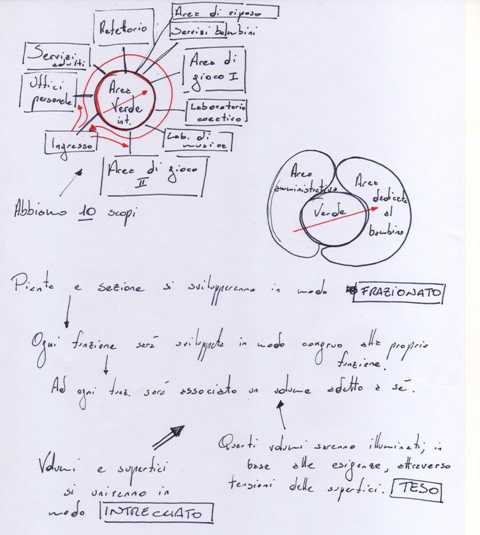 Area di riposo
Refettorio
Servizi bambini
Servizi
adulti
Area di
gioco I
Uffici
personale
Area
Verde
int.
Laboratorio
creativo
Lab. di
musica
Ingresso
Area di gioco
II
Abbiamo 10 scopi
Area
amministrativa
Verde
Area
dedicata
al
bambino
Pianta e sezione si svilupperanno in modo FRAZIONATO
Ogni funzione sarà sviluppata in modo congruo alla propria
funzione.
Ad ogni funz. sarà associato un volume adatto a sé.
Questi volumi saranno illuminati, in
base alle esigenze, attraverso
tensioni delle superfici. TESO
Volumi e superfici
si uniranno in
modo INTRECCIATO